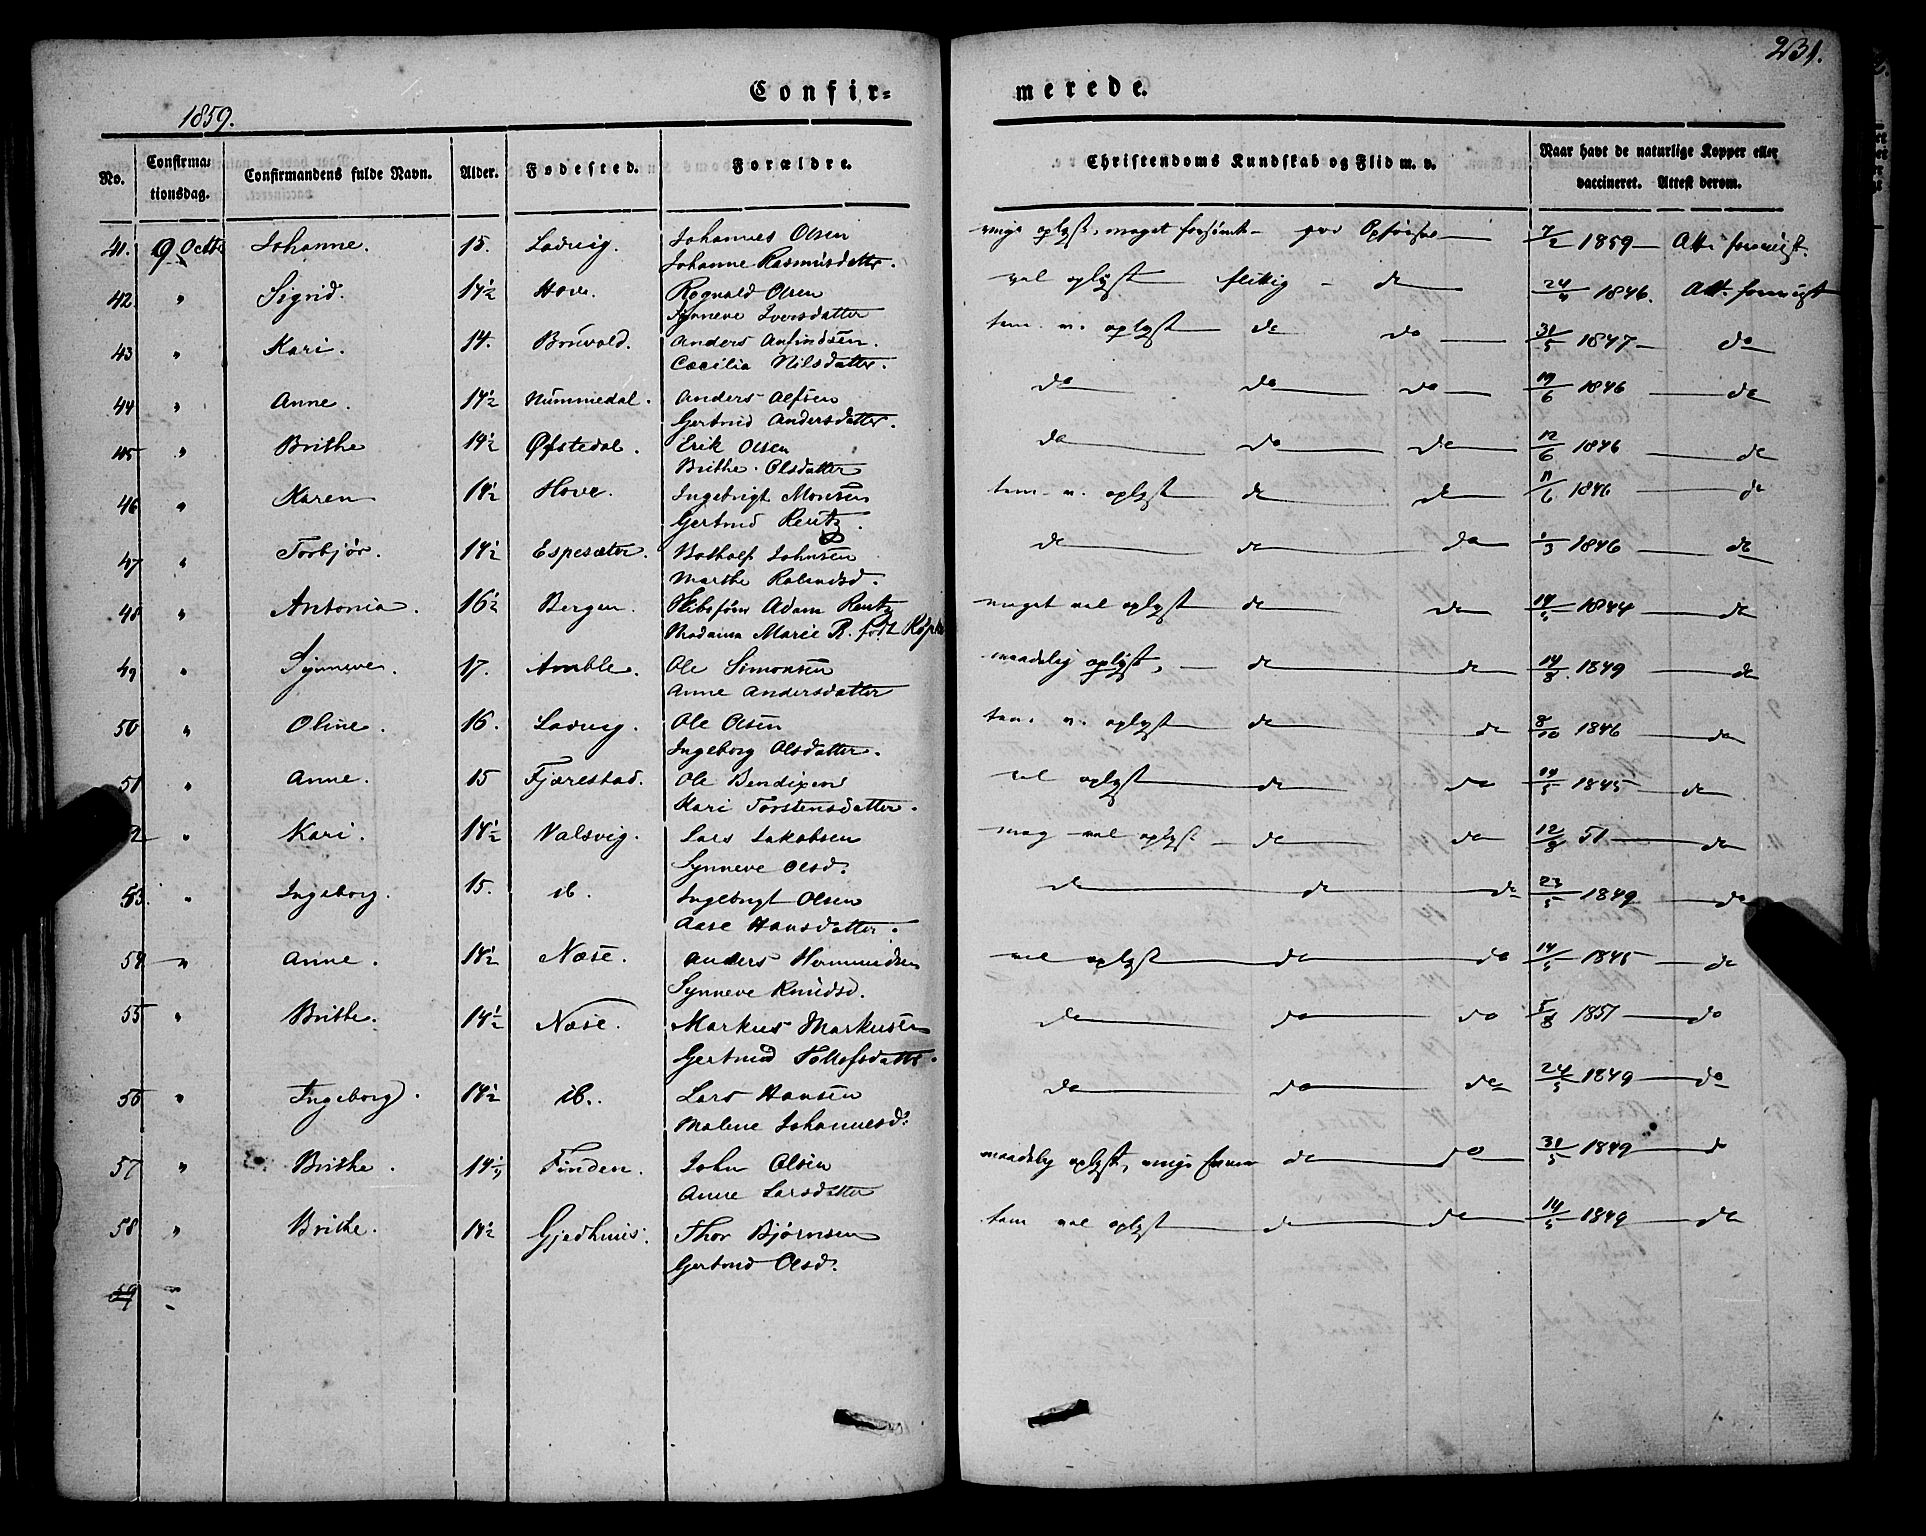 231.
Confir-
merede.
1859.
No.
Confirma-
tionsdag.
Confirmandens fulde Navn.
Alder.
Fødested.
Forældre.
Christendoms Kundskab og Flid m. v.
Naar havt de naturlige Kopper eller
vaccineret. Attest derom.
41. 9 Octb Johanne. 15. Ladvig. Johannes Olsen
Johanne Rasmusdatter.
ringe oplyst, meget forsømt - god Opførsel 7/2 1859 - Att. foreviist.
42 " Sigrid. 14½ Hove. Rognald Olsen
Synneve Iversdatter
vel oplyst flittig - do 24/4 1846. Att. foreviist
43 " Kari. 14. Bruvold. Anders Anfindsen.
Cæcilia Nilsdatter.
tem. v. oplyst do do 31/5 1847 - do
44 " Anne. 14½ Nummedal. Anders Alfsen
Gertrud Andersdatter.
do do do 19/6 1846 do
45 " Brithe 14½ Øfstedal. Erik Olsen
Brithe Olsdatter
do do do 12/6 1846 do
46 " Karen 14½ Hove. Ingebrigt Monsen
Gertrud Rentz.
tem. v. oplyst do do 11/6 1846 do
47 " Torbjør. 14½ Espesæter. Botholf Johnsen
Marthe Rolandsd.
do do do 1/3 1846 do
48 " Antonia. 16½ Bergen. Skibsfører Adam Rentz
Madama Marie R. født
meget vel oplyst do do 14/5 1844 do
49 " Synneve. 17. Amble. Ole Simonsen
Anne Andersdatter
maadelig oplyst, - do do 14/8. 1849 do
50 " Oline. 16. Ladvig. Ole Olsen
Ingeborg Olsdatter.
tem. v. oplyst do do 8/10 1846 do
51 " Anne. 15 Fjærestad. Ole Bendixen
Kari Torstensdatter.
vel oplyst do do 14/5 1845 do
2 " Kari. 14½ Valsvig. Lars Jakobsen
Synneve Olsd.
meg vel oplyst - do do 12/8 51 do
53. " Ingeborg. 15. ib. Ingebrigt Olsen
Aase Hansdatter.
do do do 23/5 1849 do
54 " Anne. 14½ Næse. Anders Hermundsen
Synneve Knudsd.
vel oplyst do do 14/5 1845 do
55 " Brithe. 14½ Næse. Markus Markusen
Gertrud Tollefsdatter.
do do do 5/8 1851 do
56 " Ingeborg. 14½ ib. Lars Hansen
Malene Johannesd.
do do do 24/5 1849 do
57 " Brithe. 14¼ Finden. John Olsen
Anne Larsdatter
maadelig oplyst, ringe do do 31/5 1849 do
58 " Brithe. 14½ Gjedhuus. Thor Bjørnsen
Gertrud Olsd.
tem vel oplyst do do 14/5 1849 do
59 "